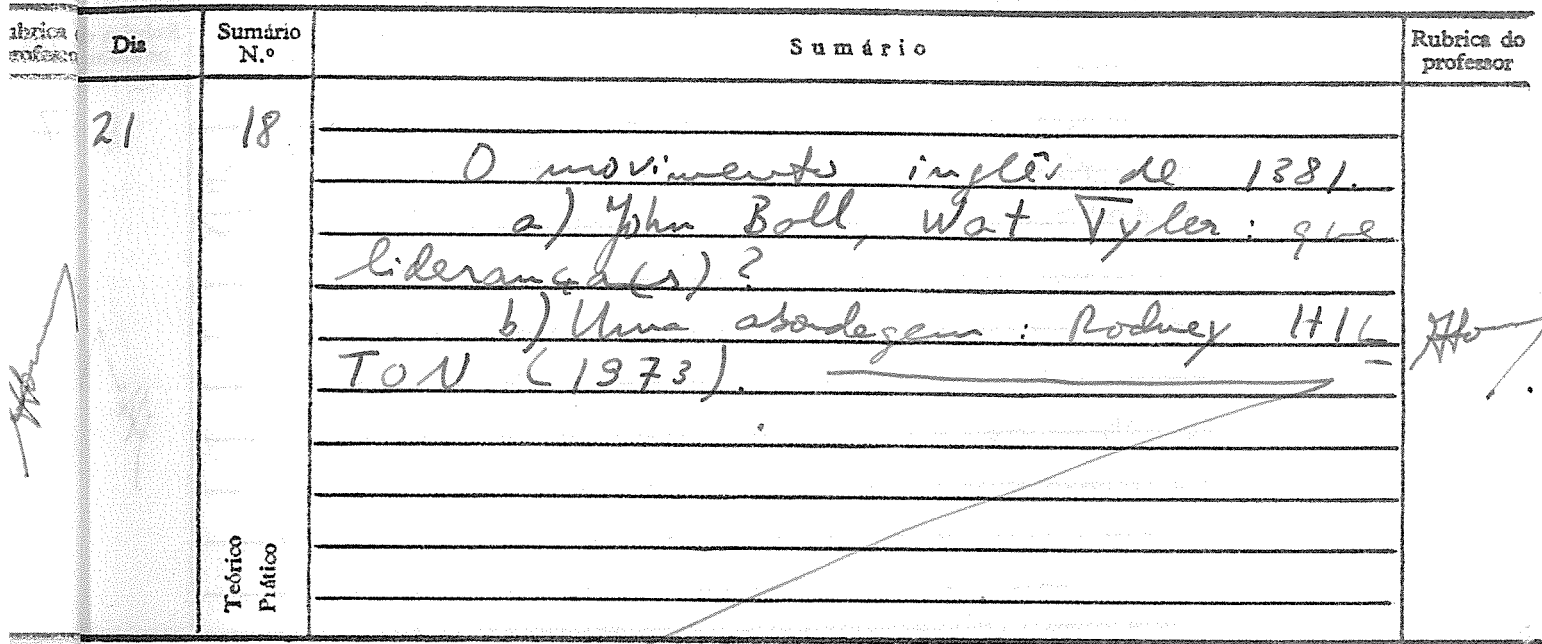 ubrica
rofessor
Dia
Sumário
N.º
Sumário
Rubrica do
professor
21
18
O movimento inglês de 1381.
a) John Ball, Wat Tyler: que
liderança(s)?
b) Uma abordagem: Rodney HIL
TON (1973).
Teórico
Prático